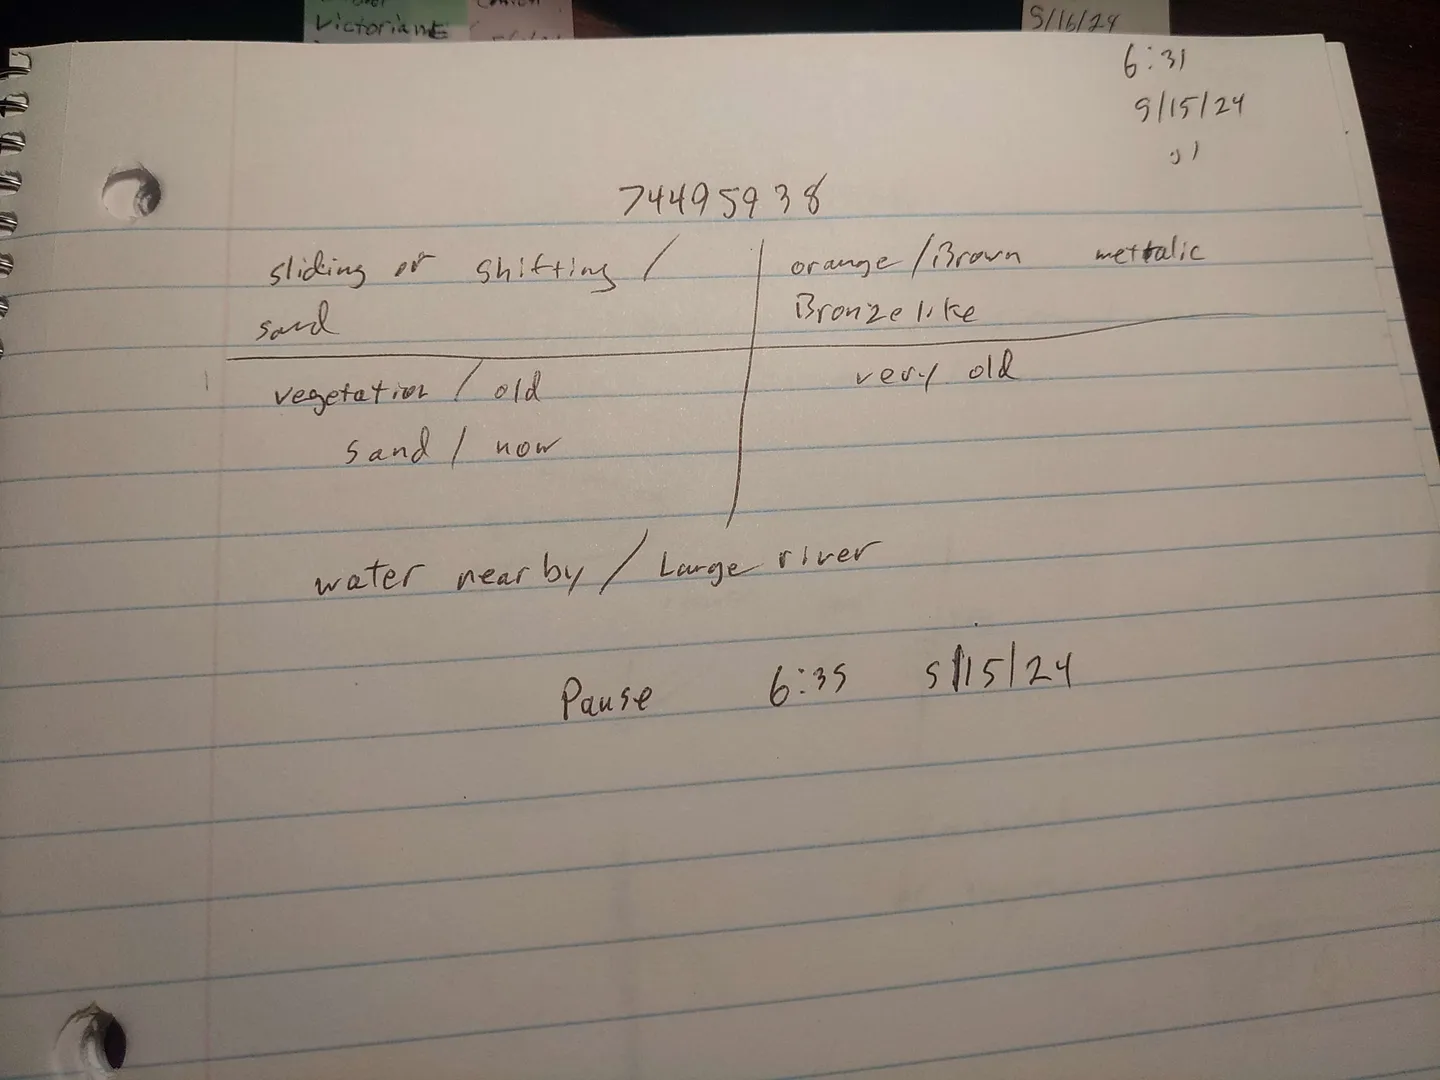 Victorian
5/16/24
6:31
5/15/24
01
74495938
sliding or shifting /
sand
orange/Brown mettalic
Bronze like
vegetation / old
sand / now
very old
water near by / Large river
Pause 6:35 5/15/24